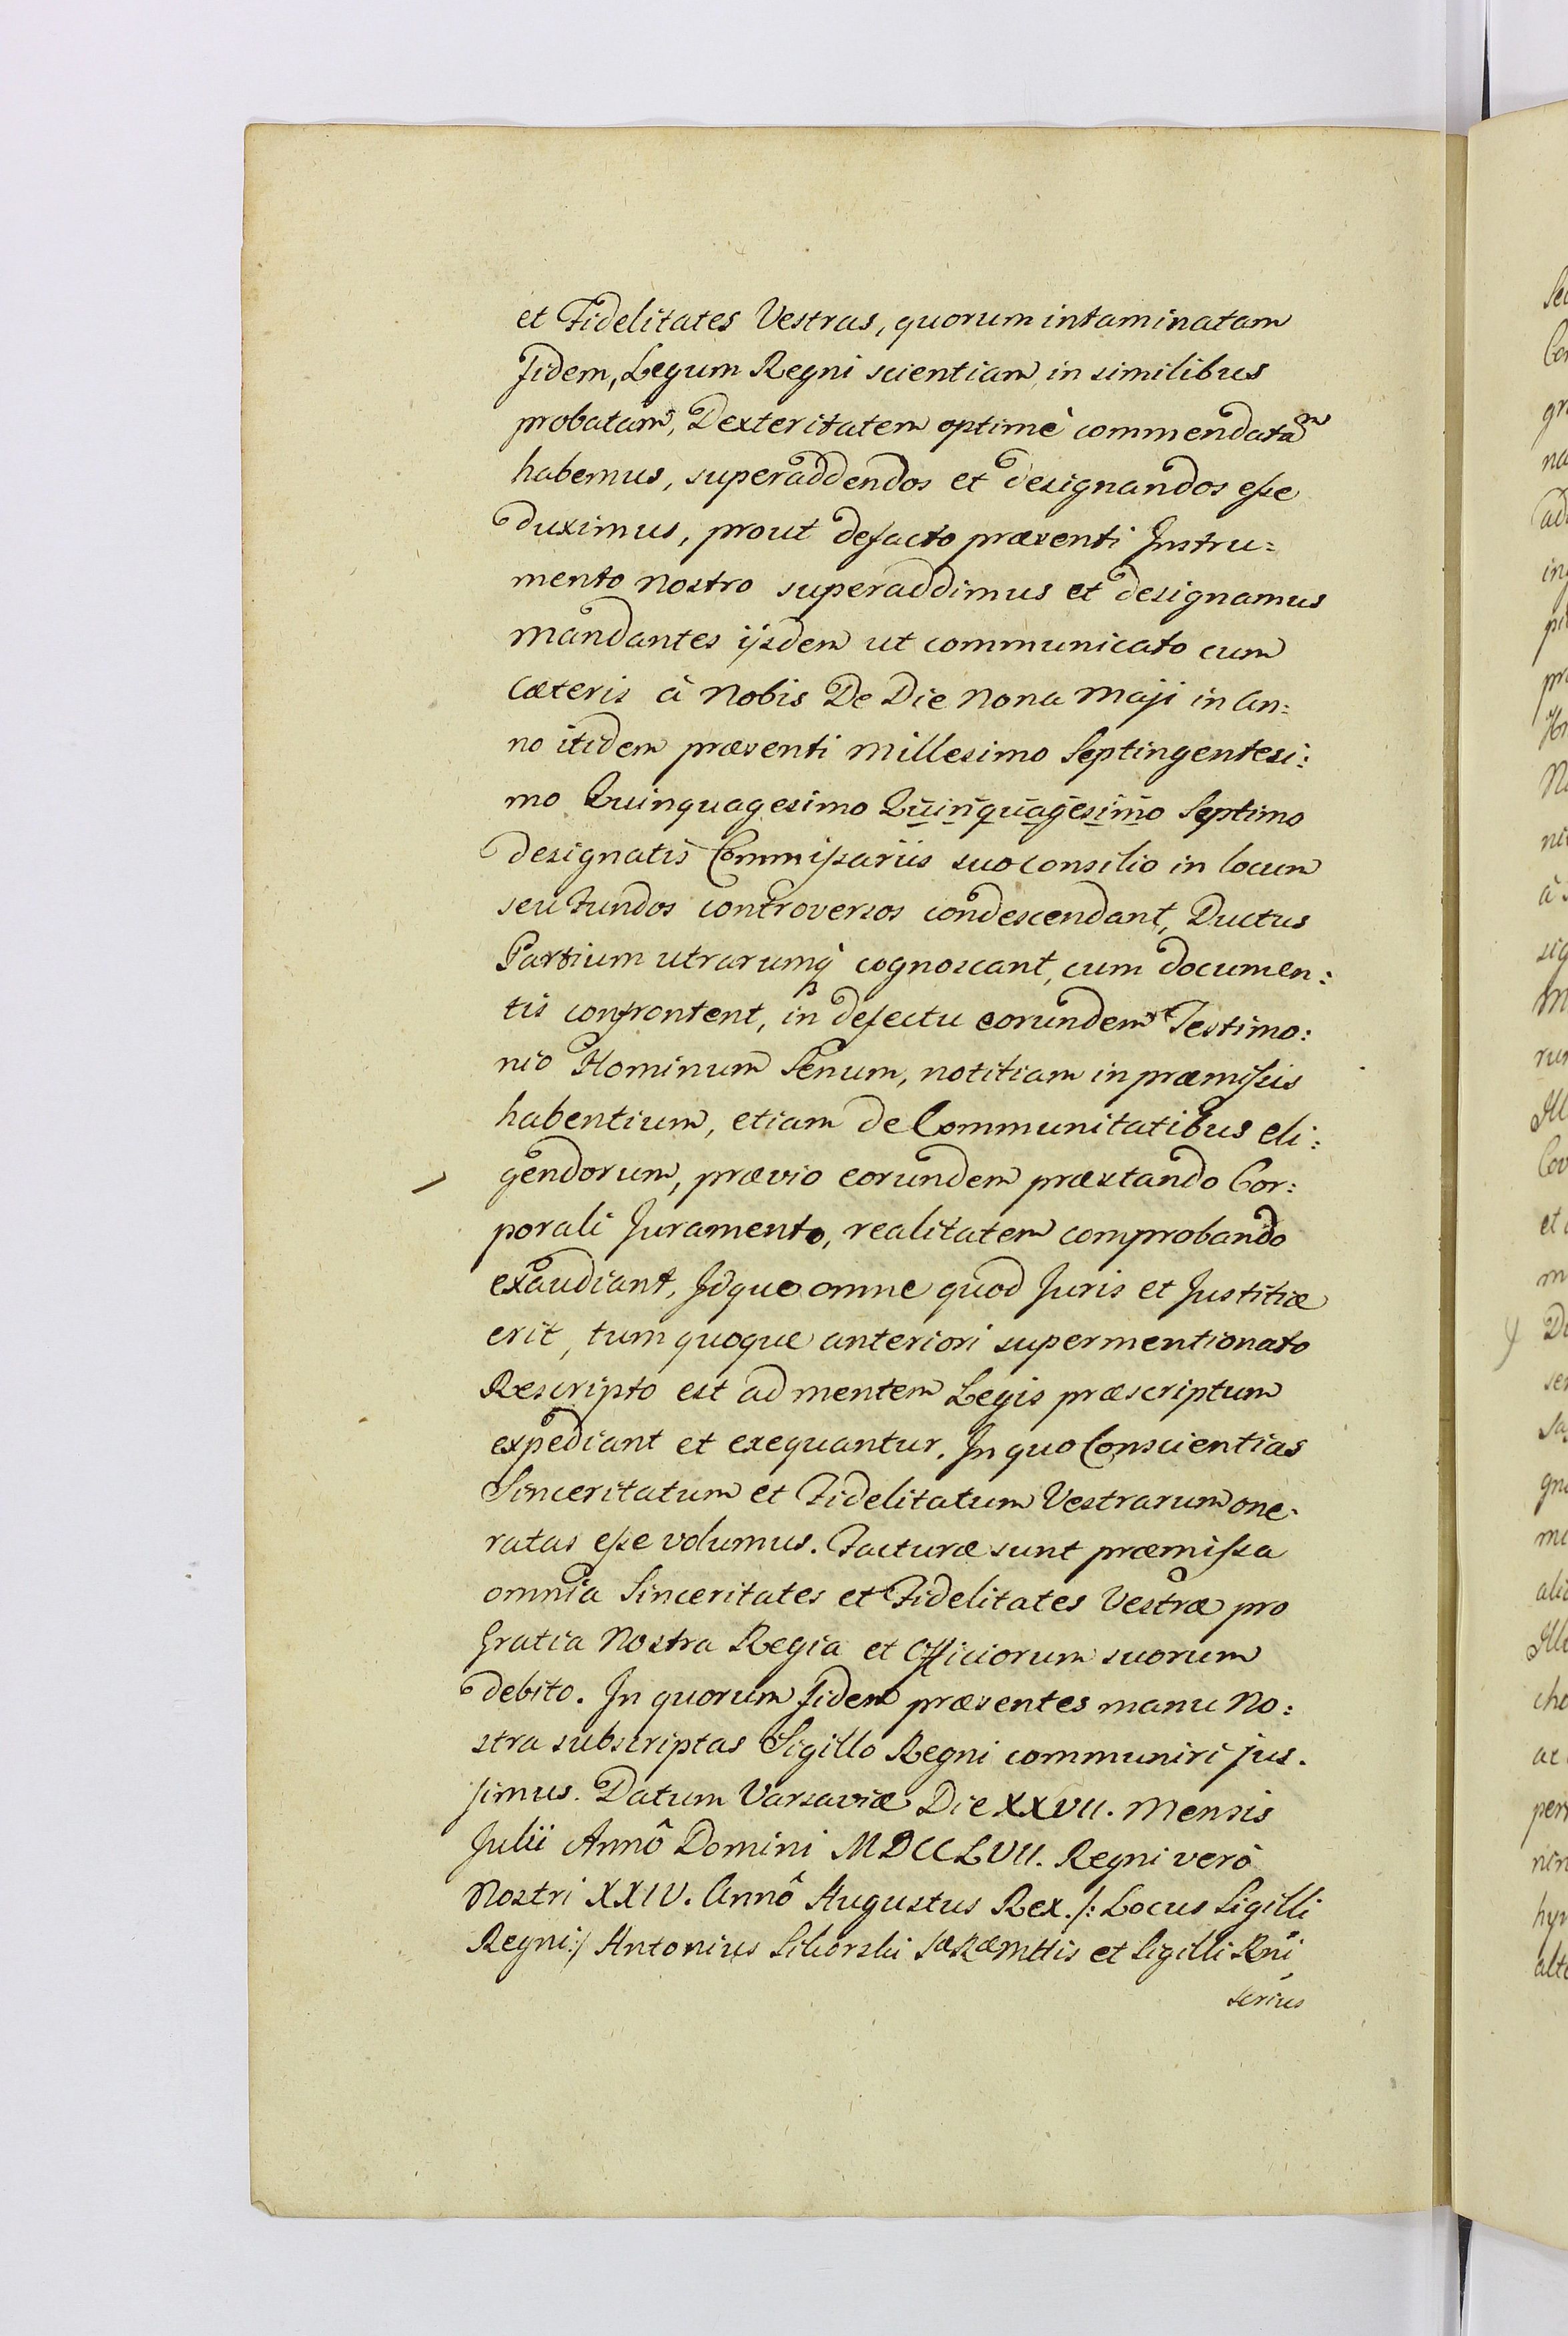 et Fidelitates Vestras, quorum intaminatam
fidem, Legum Regni scientiam in similibus
probatam, Dexteritatem optimè commendatam
habemus, superaddendos et designandos eſse
duximus, prout defacto præsenti Instru=
mento nostro superaddimus et designamus
mandantes ijsdem ut communicato cum
Cæteris à Nobis De Die Nona Maji in An:
no itidem præsenti Millesimo Septingentesi:
mo Quinquagesimo Quinquagesimo Septimo
designatis Commiſsariis suo consilio in locum
seu Fundos controversos condescendant, Ductus
Partium utrarumq́ cognoscant, cum documen:
tis confrontent, in defectu eorundem Testimo:
nio Hominum Senum, notitiam in præmiſsis
habentium, etiam de Communitatibus eli:
gendorum, prævio eorundem præstando Cor:
porali Juramento, realitatem comprobando
exaudiant, Idque omne quod Juris et Justitiæ
erit, tum quoque anteriori supermentionato
Rescripto est ad mentem Legis præscriptum
expediant et exequantur. In quo Conscientias
Sinceritatum et Fidelitatum Vestrarum one:
ratas eſse volumus. Facturæ sunt præmiſsa
omnia Sinceritates et Fidelitates Vestræ pro
Gratia Nostra Regia et Officiorum suorum
debito. In quorum fidem præsentes manu No:
stra subscriptas Sigillo Regni communiri jus.
simus. Datum Varsaviæ Die XXVII. Mensis
Julii Annô Domini MDCCLVII. Regni verò
Nostri XXIV. Annô Augustus Rex. /: Locus Sigilli
Regni :/ Antonius Sikorski SæRæMttis et Sigilli Rni
scrius